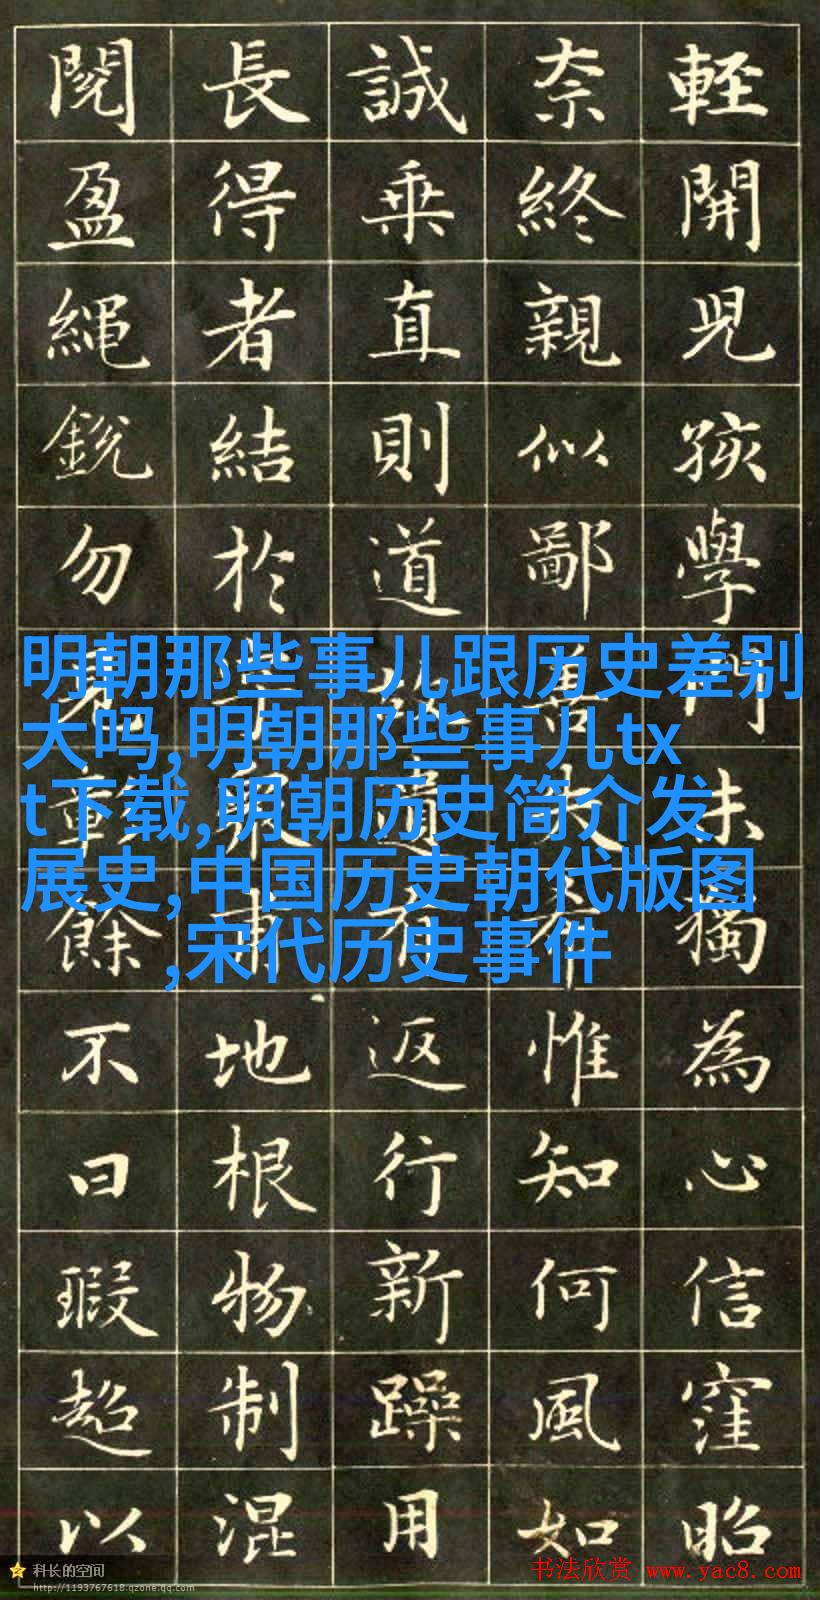 閱長誠奈輕
盈得乗終開
繩者直親児
銳結則似孩
勿於道鄙學
明朝那些事儿跟历史差别
大吗,明朝那些事儿tx
t下载,明朝历史简介发
展史,中国历史朝代版图
,宋代历史事件
不地返惟為
曰根行知心
瑕物新何信
超制躁風窪
以混用如昭
科长的空间
http://1193767618.qzone.qq.com
书法欣赏 www.yac8.com